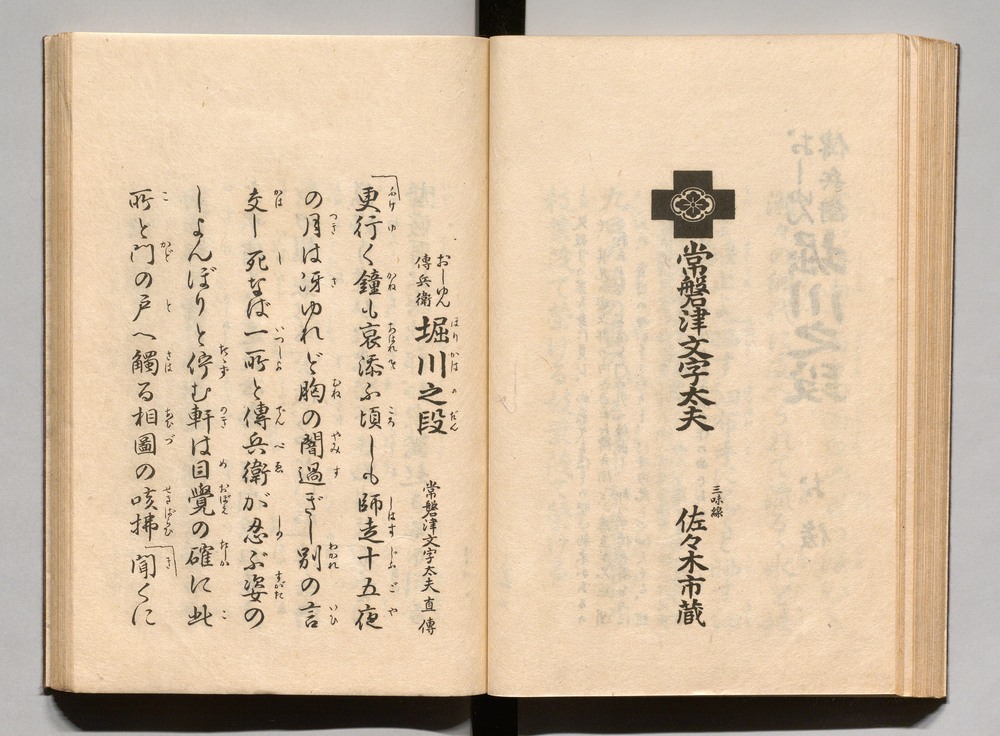 常磐津文字太夫
三味線 佐々木市蔵
おしゆん
傳兵衛
堀川之段
常磐津文字太夫直傳
更行く鐘も哀添ふ頃しも師走十五夜
の月は冴ゆれど胸の闇過ぎし別の言
交し死なば一所と傳兵衛が忍ぶ姿の
しよんぼりと佇む軒は目覺の確に此
所と門の戸へ觸る相圖の咳拂聞くに